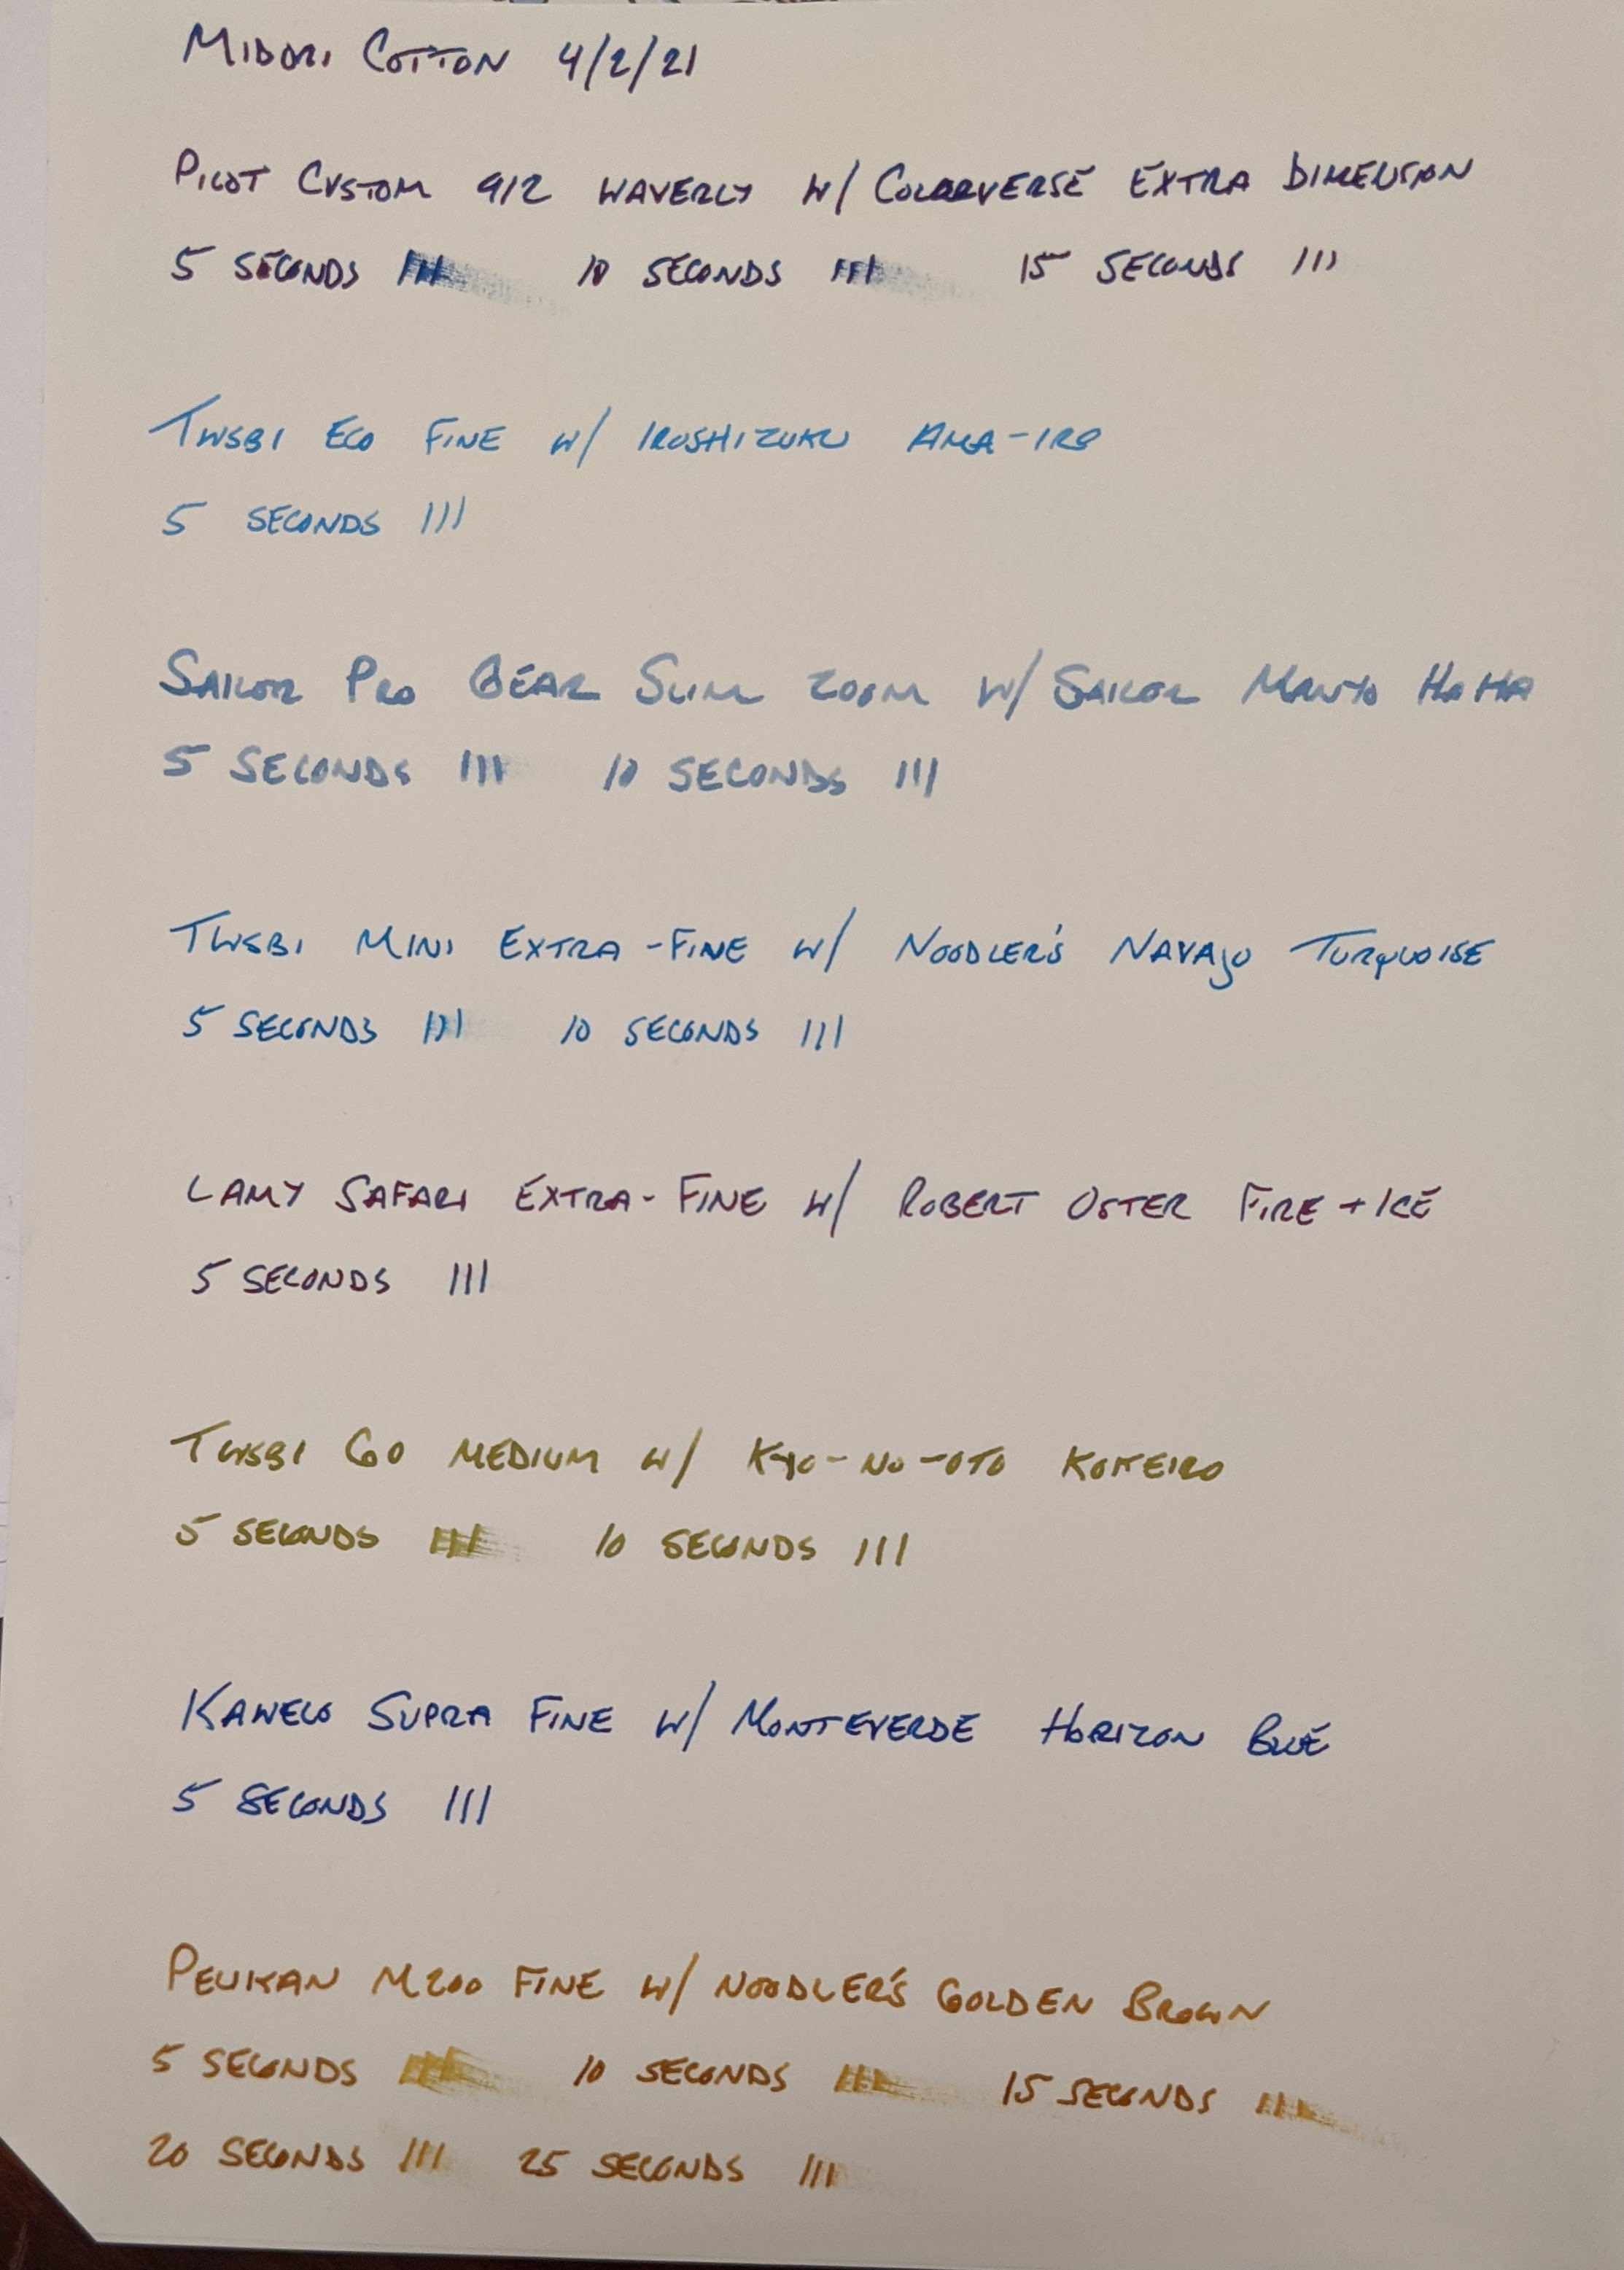 MIDORI COTTON 4/2/21
PILOT CUSTOM 912 WAVERLY W/ COLORVERSE EXTRA DIMENSION
5 SECONDS III 10 SECONDS III 15 SECONDS III
TWSBI ECO FINE W/ IROSHIZUKU AMA-IRO
5 SECONDS III
SAILOR PRO GEAR SLIM ZOOM W/ SAILOR MANYO HAHA
5 SECONDS III 10 SECONDS III
TWSBI MINI EXTRA-FINE W/ NOODLER'S NAVAJO TURQUOISE
5 SECONDS III 10 SECONDS III
LAMY SAFARI EXTRA-FINE W/ ROBERT OSTER FIRE + ICE
5 SECONDS III
TWSBI GO MEDIUM W/ KYO-NO-OTO KOKEIRO
5 SECONDS III 10 SECONDS III
KAWECO SUPRA FINE W/ MONTEVERDE HORIZON BLUE
5 SECONDS III
PELIKAN M200 FINE W/ NOODLER'S GOLDEN BROWN
5 SECONDS III 10 SECONDS III 15 SECONDS III
20 SECONDS III 25 SECONDS III